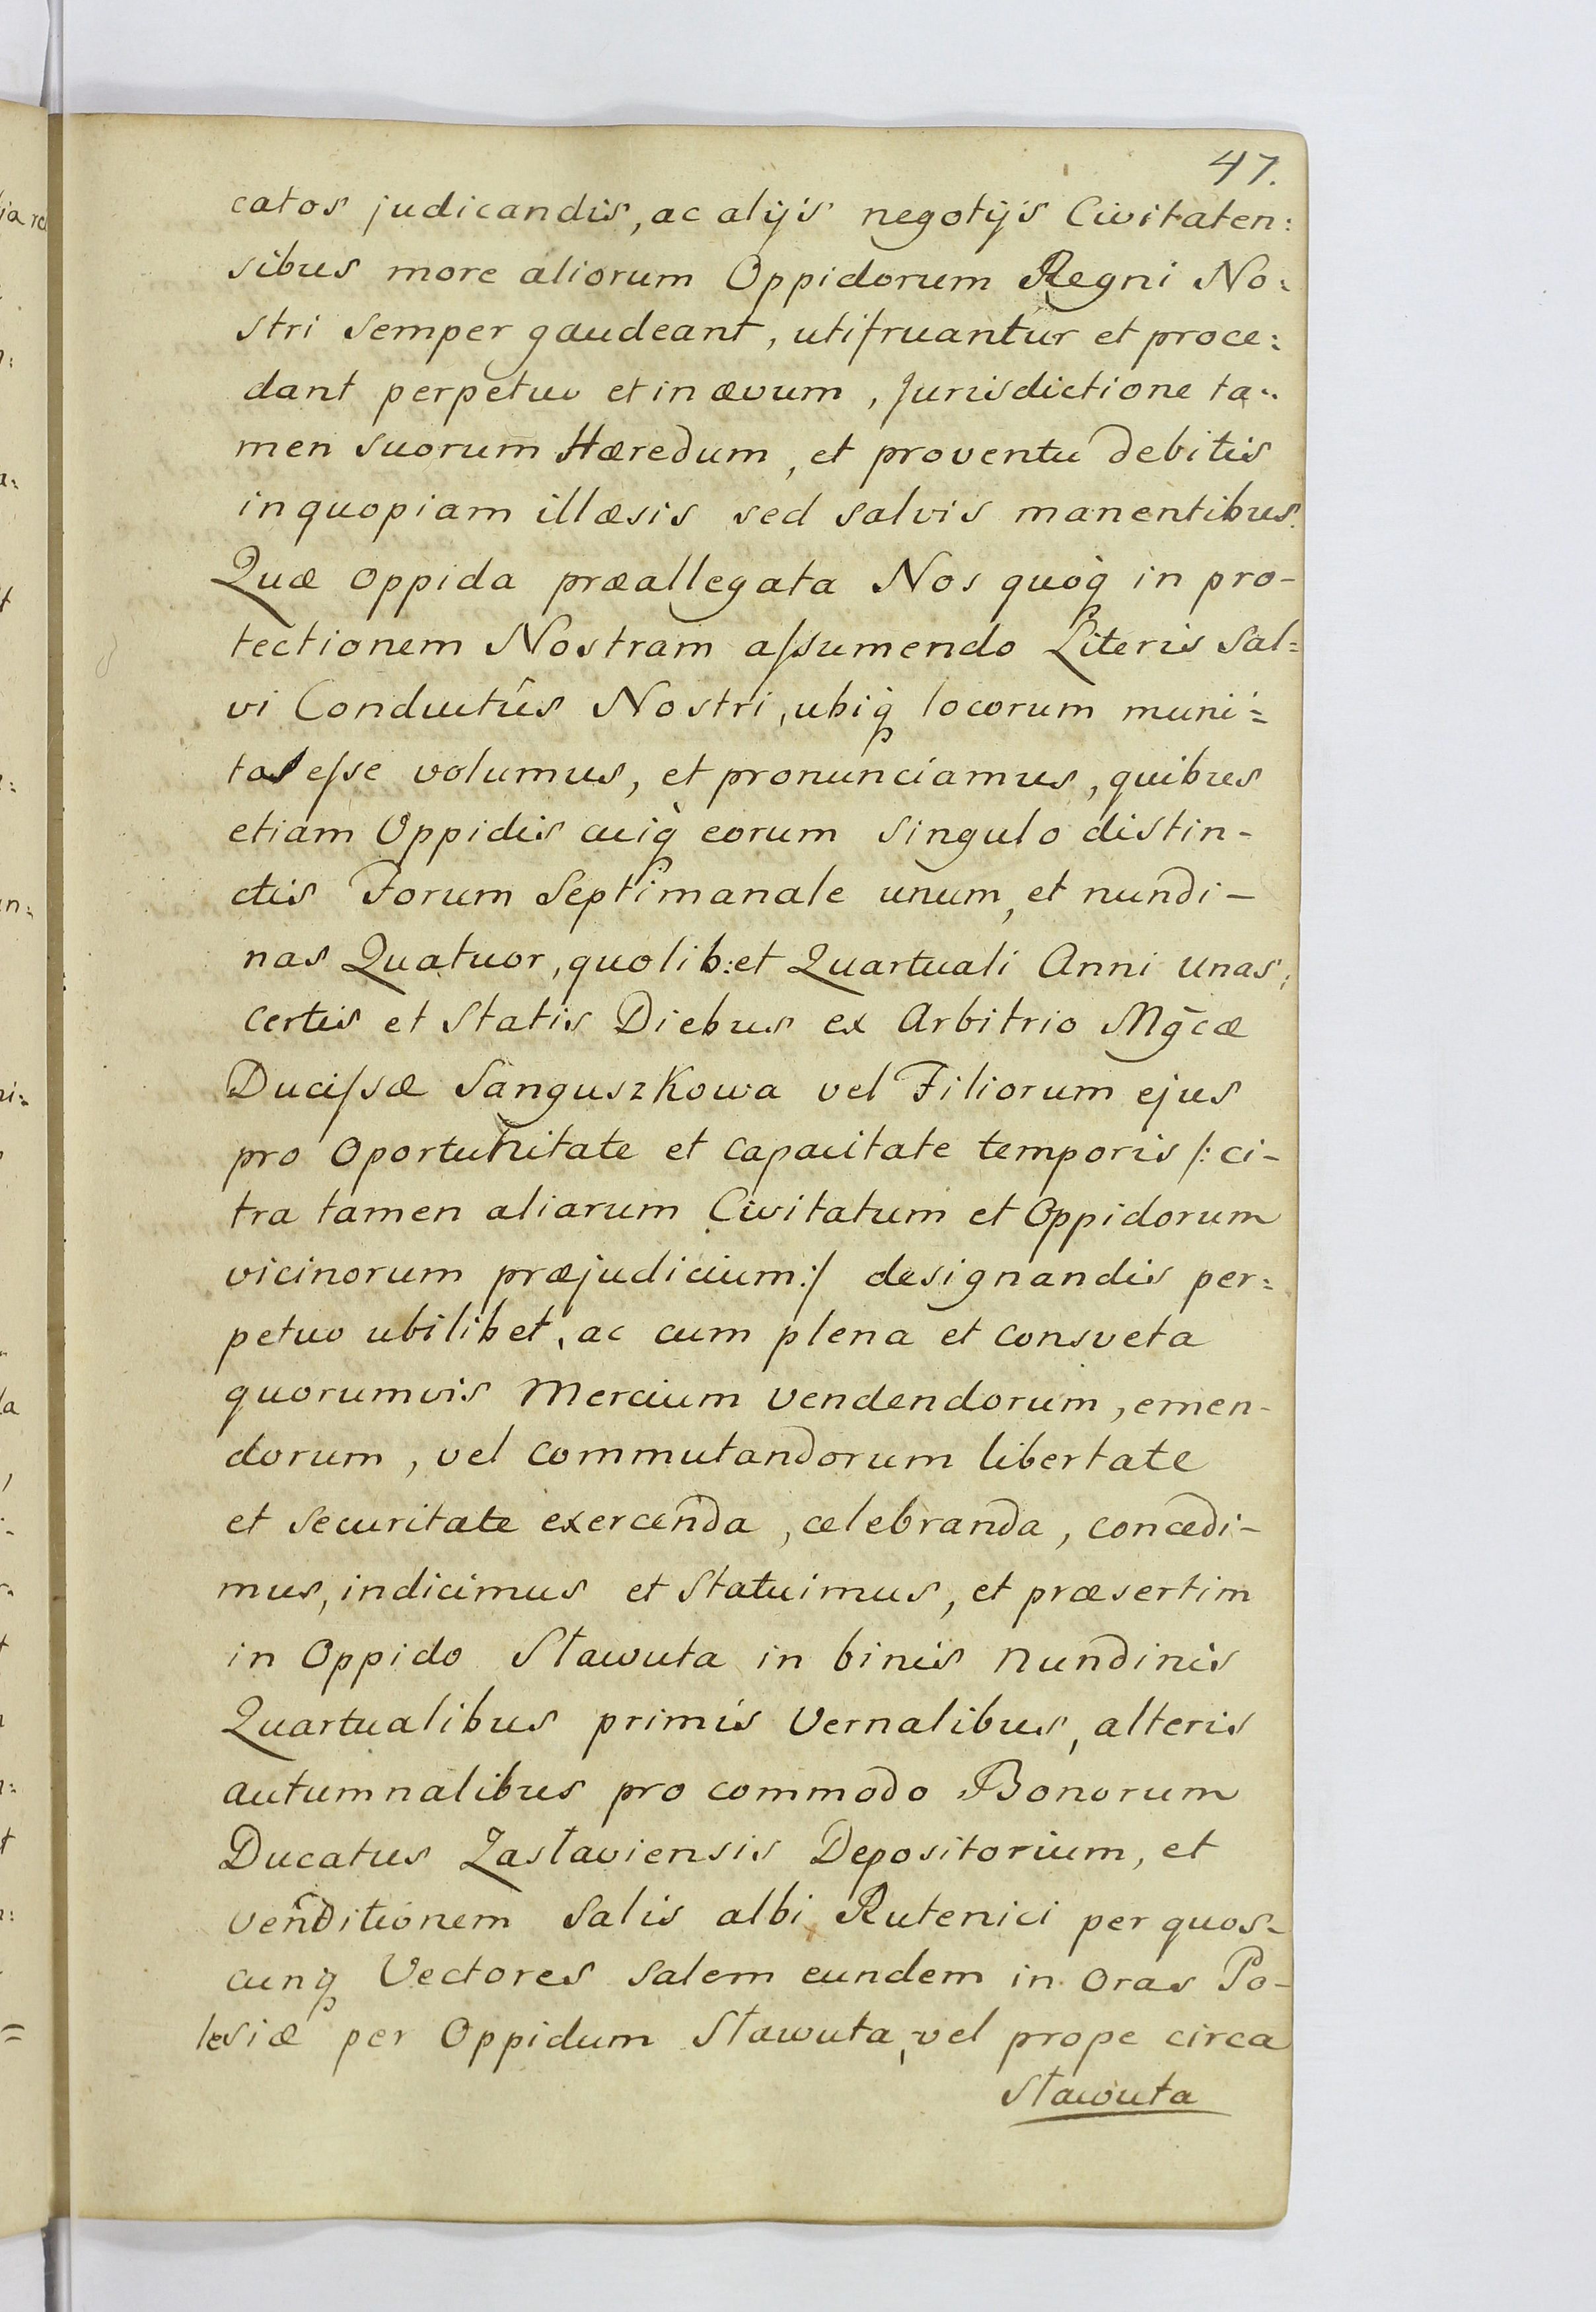 47.
catos judicandis, ac alijs negotijs Civitaten:
sibus more aliorum Oppidorum Regni No:
stri semper gaudeant, utifruantur et proce:
dant perpetuo et in ævum, Jurisdictione ta:
men suorum Hæredum, et proventu debitis
inquopiam illæsis sed salvis manentibus.
Quæ oppida præallegata Nos quoq̀ in pro-
tectionem Nostram aſsumendo Literis Sal=
vi Conductûs Nostri, ubiq̀ locorum muni=
tas eſse volumus, et pronunciamus, quibus
etiam Oppidis cuiq̀ eorum singulo distin-
ctis Forum Septimanale unum, et nundi-
nas Quatuor, quolib:et Quartuali Anni unas,
certis et statis Diebus ex Arbitrio Mg̃cæ
Duciſsæ Sanguszkowa vel Filiorum ejus
pro Oportunitate et capacitate temporis /: ci-
tra tamen aliarum Civitatum et Oppidorum
vicinorum præjudicium :/ designandis per=
petuo ubilibet, ac cum plena et consveta
quorumvis Mercium vendendorum, emen-
dorum, vel commutandorum libertate
et securitate exercenda, celebranda, concedi-
mus, indicimus et statuimus, et præsertim
in Oppido Sławuta in binis nundinis
Quartualibus primis Vernalibus, alteris
autumnalibus pro commodo Bonorum
Ducatus Zasłaviensis Depositorium, et
venditionem Salis albi Rutenici per quos-
cunq̀ Vectores salem eundem in Oras Po-
lesiæ per Oppidum Sławuta, vel prope circa
Sławuta